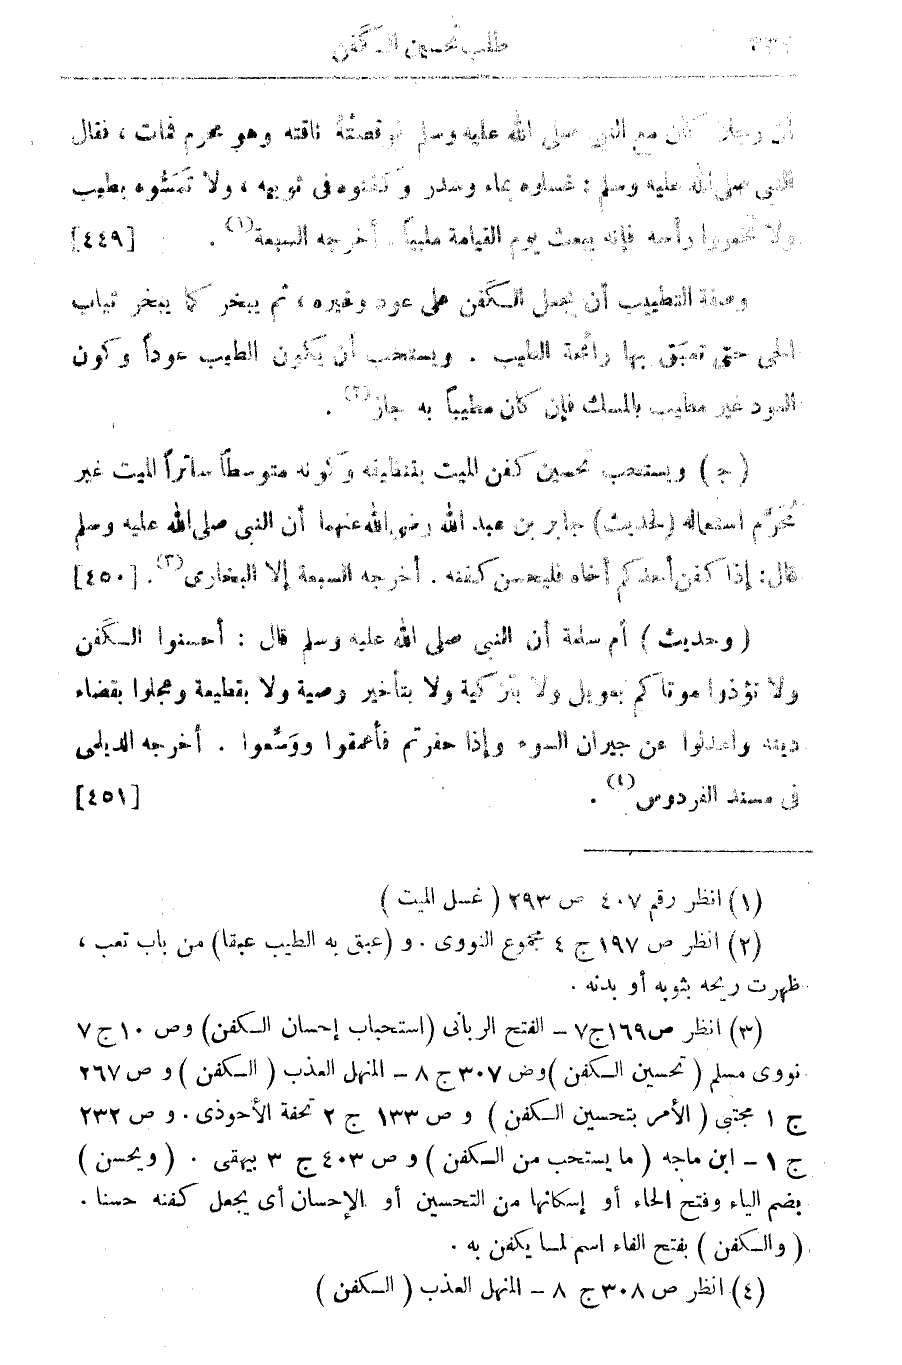 طلب تحسين الكفن
أن رجلا كان مع النبى صلى الله عليه وسلم فوقصتْهُ ناقته وهو محرم فمات ، فقال
النبى صلى الله عليه وسلم : غسلوه بماء وسدر وكفنوه فى ثوبيه ، ولا تَمَسُّوه بطيب
ولا تُخَمِّروا رأسه فإنه يبعث يوم القيامة ملبياً . أخرجه السبعة (١) . [٤٤٩]
وصفة التطييب أن يجعل الكَفن على عود وغيره ، ثم يبخر كما يبخر ثياب
الحى حتى تعبَق بها رائحة الطيب . ويستحب أن يكون الطيب عوداً وكون
العود غير مطيب بالمسك فإن كان مطيباً به جاز (٢) .
( ج ) ويستحب تحسين كفن الميت بتنظيفه وكونه متوسطاً ساتراً للميت غير
مُحَرَّم استعماله (لحديث) جابر بن عبد الله رضى الله عنهما أن النبى صلى الله عليه وسلم
قال: إذا كفن أحدكم أخاه فليحسن كفنه . أخرجه السبعة إلا البخارى (٣) . [٤٥٠]
( وحديث ) أم سلمة أن النبى صلى الله عليه وسلم قال : أحسنوا الكَفن
ولا تؤذوا موتاكم بعويل ولا بتزكية ولا بتأخير وصية ولا بقطيعة وعجلوا بقضاء
دينه واعدلوا عن جيران السوء وإذا حفرتم فأعمقوا ووَسِّعوا . أخرجه الديلمى
فى مسند الفردوس (٤) . [٤٥١]
(١) انظر رقم ٤٠٧ ص ٢٩٣ ( غسل الميت )
(٢) انظر ص ١٩٧ ج ٤ مجموع النووى . و (عبق به الطيب عبقا) من باب تعب ،
ظهرت ريحه بثوبه أو بدنه .
(٣) انظر ص ١٦٩ ج ٧ – الفتح الربانى (استحباب إحسان الكفن) وص ١٠ ج ٧
نووى مسلم ( تحسين الكفن ) وص ٣٠٧ ج ٨ – المنهل العذب ( الكفن ) و ص ٢٦٧
ج ١ مجتبى ( الأمر بتحسين الكفن ) و ص ١٣٣ ج ٢ تحفة الأحوذى . و ص ٢٣٢
ج ١ – ابن ماجه ( ما يستحب من الكفن ) و ص ٤٠٣ ج ٣ بيهقى . ( ويحسن )
بضم الياء وفتح الحاء أو إسكانها من التحسين أو الإحسان أى يجعل كفنه حسنا .
( والكفن ) بفتح الفاء اسم لما يكفن به .
(٤) انظر ص ٣٠٨ ج ٨ – المنهل العذب ( الكفن )